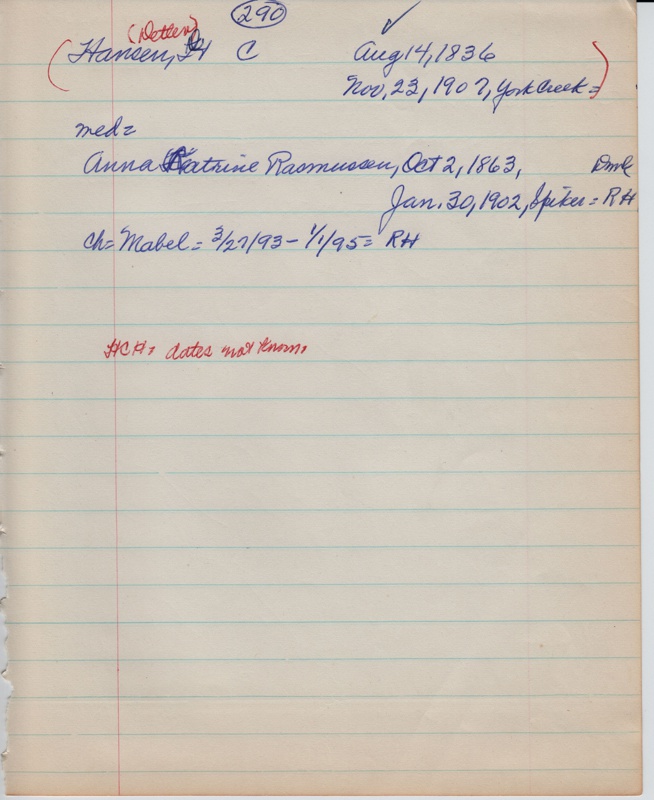 290
(Detlev)
(Hansen, H C Aug 14, 1836
Nov. 23, 1907, York Creek =)
med =
Anna Katrine Rasmussen, Oct 2, 1863, Dmk
Jan. 30, 1902, Spiker = RH
Ch = Mabel = 3/27/93 - 1/1/95 = RH
HCH = dates not known.